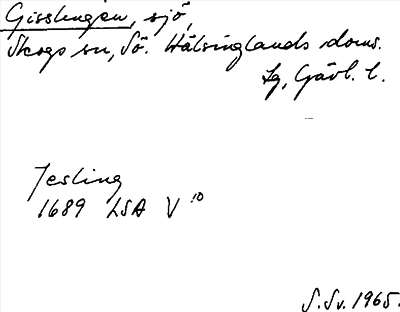 Gisslingen, sjö,
Skogs sn, Sö. Hälsinglands doms.
lg, Gävl. l.
Jesling
1689 LSA V 10
S. Sv. 1965.